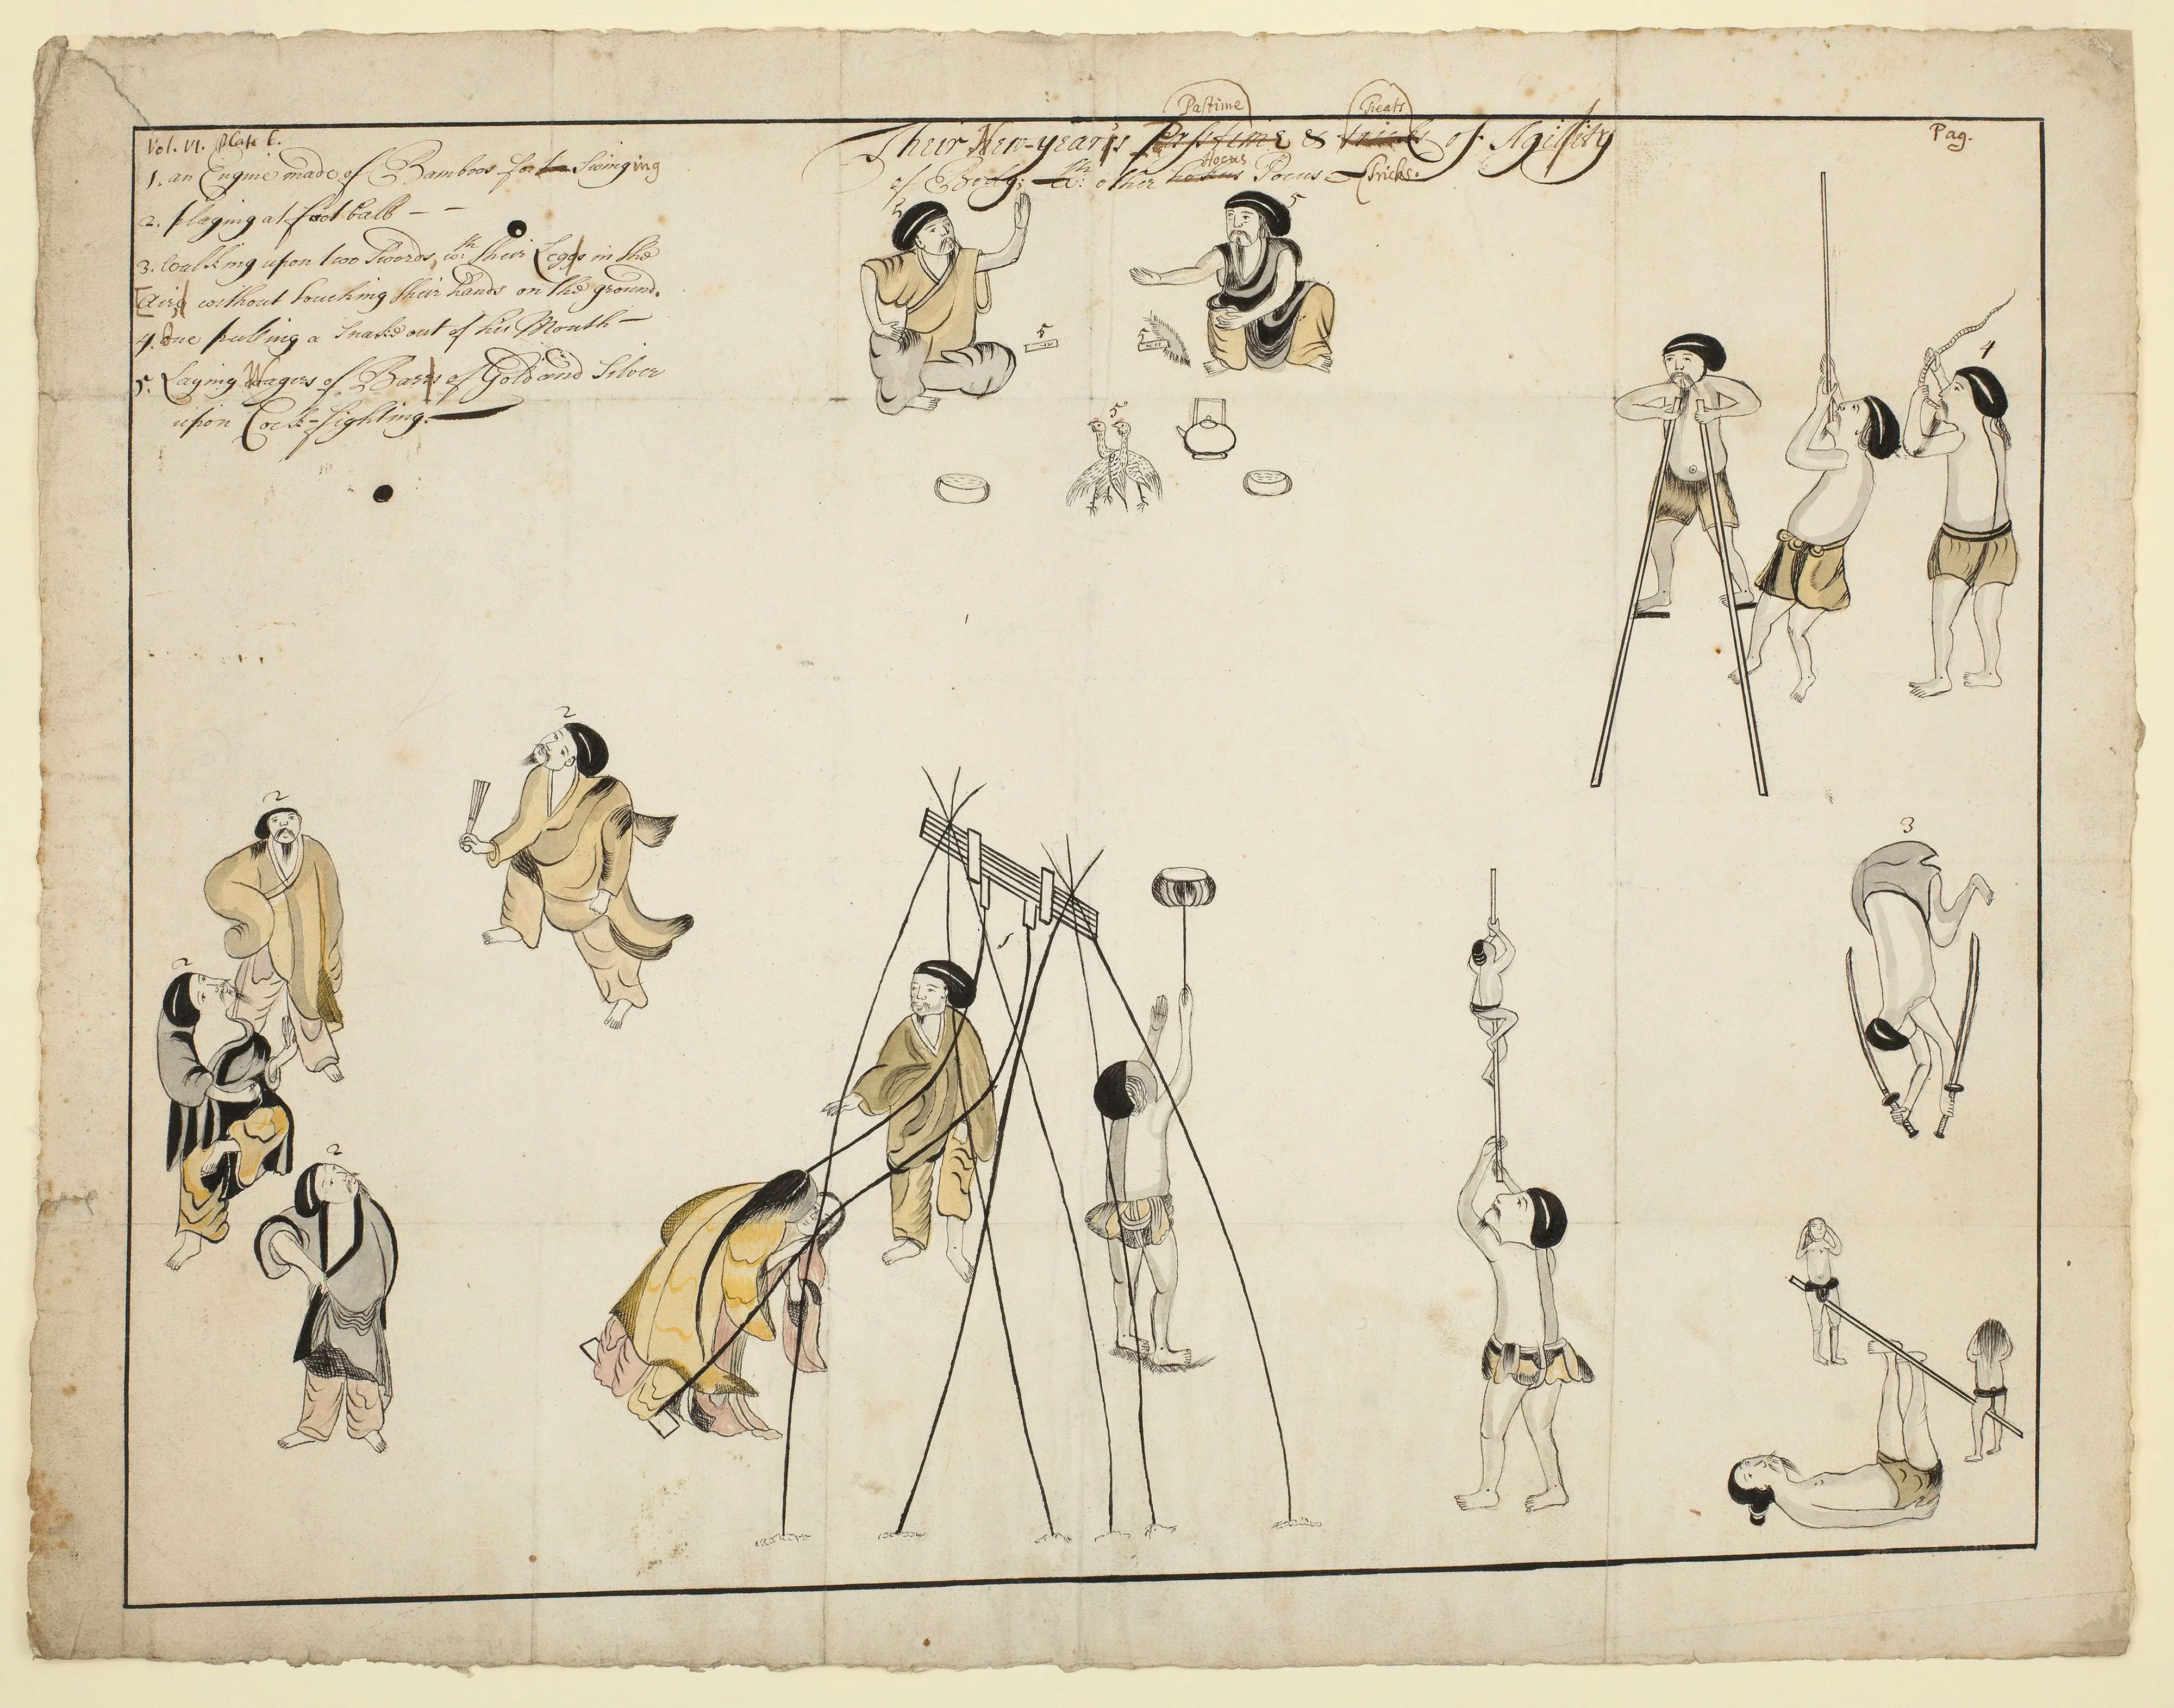 Vol. VI. Plate C.
1. an Engine made of Bamboos for Swinging
2. playing at foot ball
3. Walking upon two Swords, wth their Leggs in the
Air, without touching their hands on the ground.
4. One pulling a Snake out of his Mouth
5. Laying Wagers of Barrs of Gold and Silver
upon Cock-fighting.
Pastime Feats
Their New-year's Passtime & tricks of Agility
Hocus
of Body; wth other hokus Pocus tricks.
Pag.
5 5
5 5
5
4
3
2
2
2
2